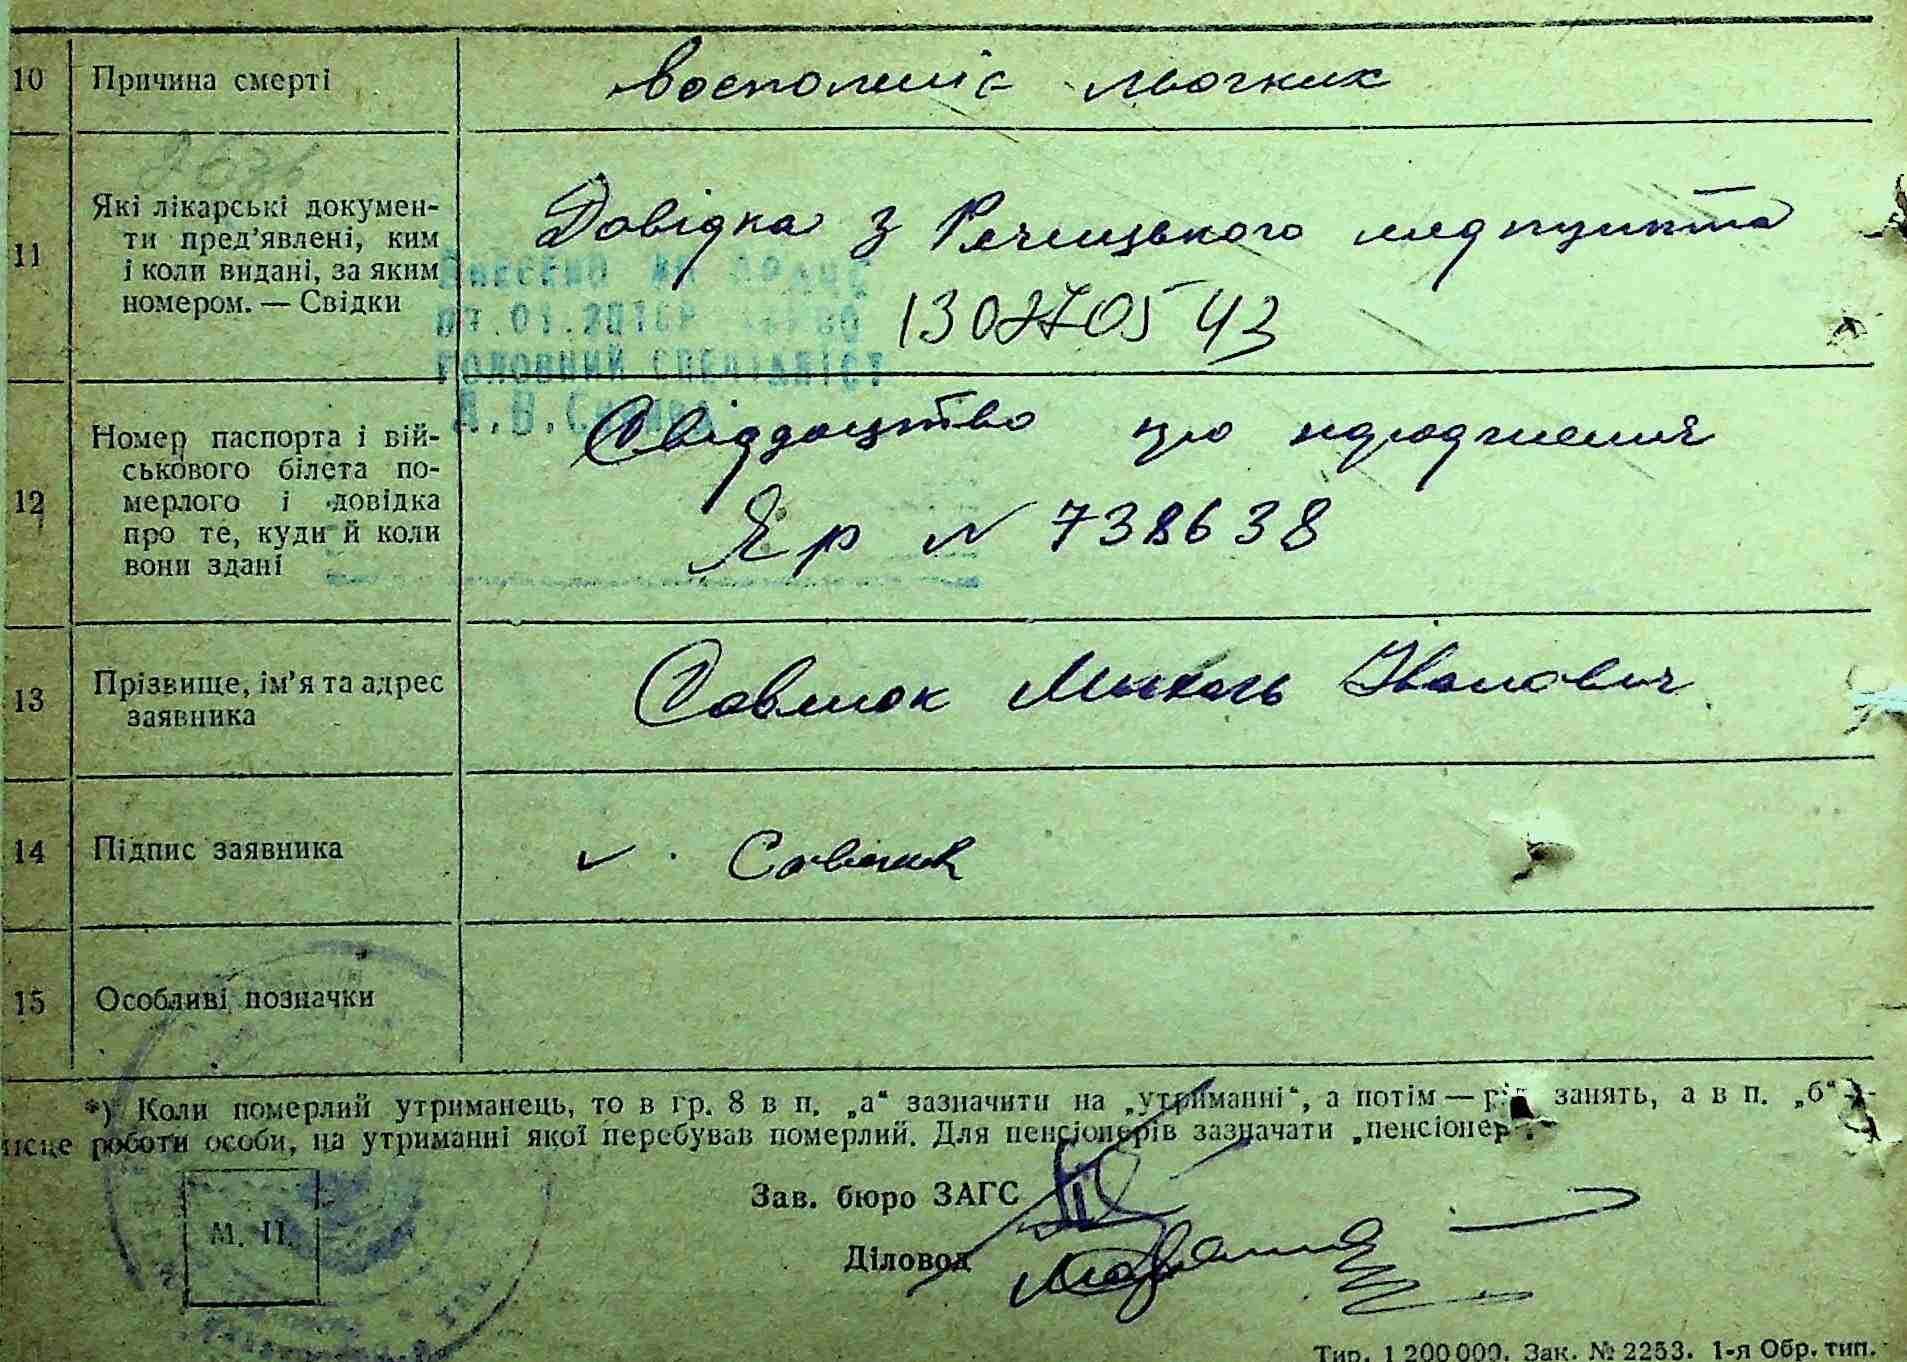 10 Причина смерті
восполеніє льогких
11 Які лікарські докумен-
ти пред'явлені, ким
і коли видані, за яким
номером. — Свідки
Довідка з Речицького медпункта
43
ГОЛОВНИЙ СПЕЦІАЛІСТ
12 Номер паспорта і вій-
ськового білета по-
мерлого і довідка
про те, куди й коли
вони здані
Свіддоцтво про народження
Яр N 738638
13 Прізвище, ім'я та адрес
заявника
Савлюк Іванович
14 Підпис заявника
15 Особливі позначки
*) Коли померлий утриманець, то в гр. 8 в п. „а“ зазначити на „утриманні“, а потім — занять, а в п. „б“ —
роботи особи, на утриманні якої перебував померлий. Для пенсіонерів зазначати „пенсіонер“.
Зав. бюро ЗАГС
Діловод
М. П.
Тир. 1 200 000. Зак. № 2253. 1-я Обр. тип.